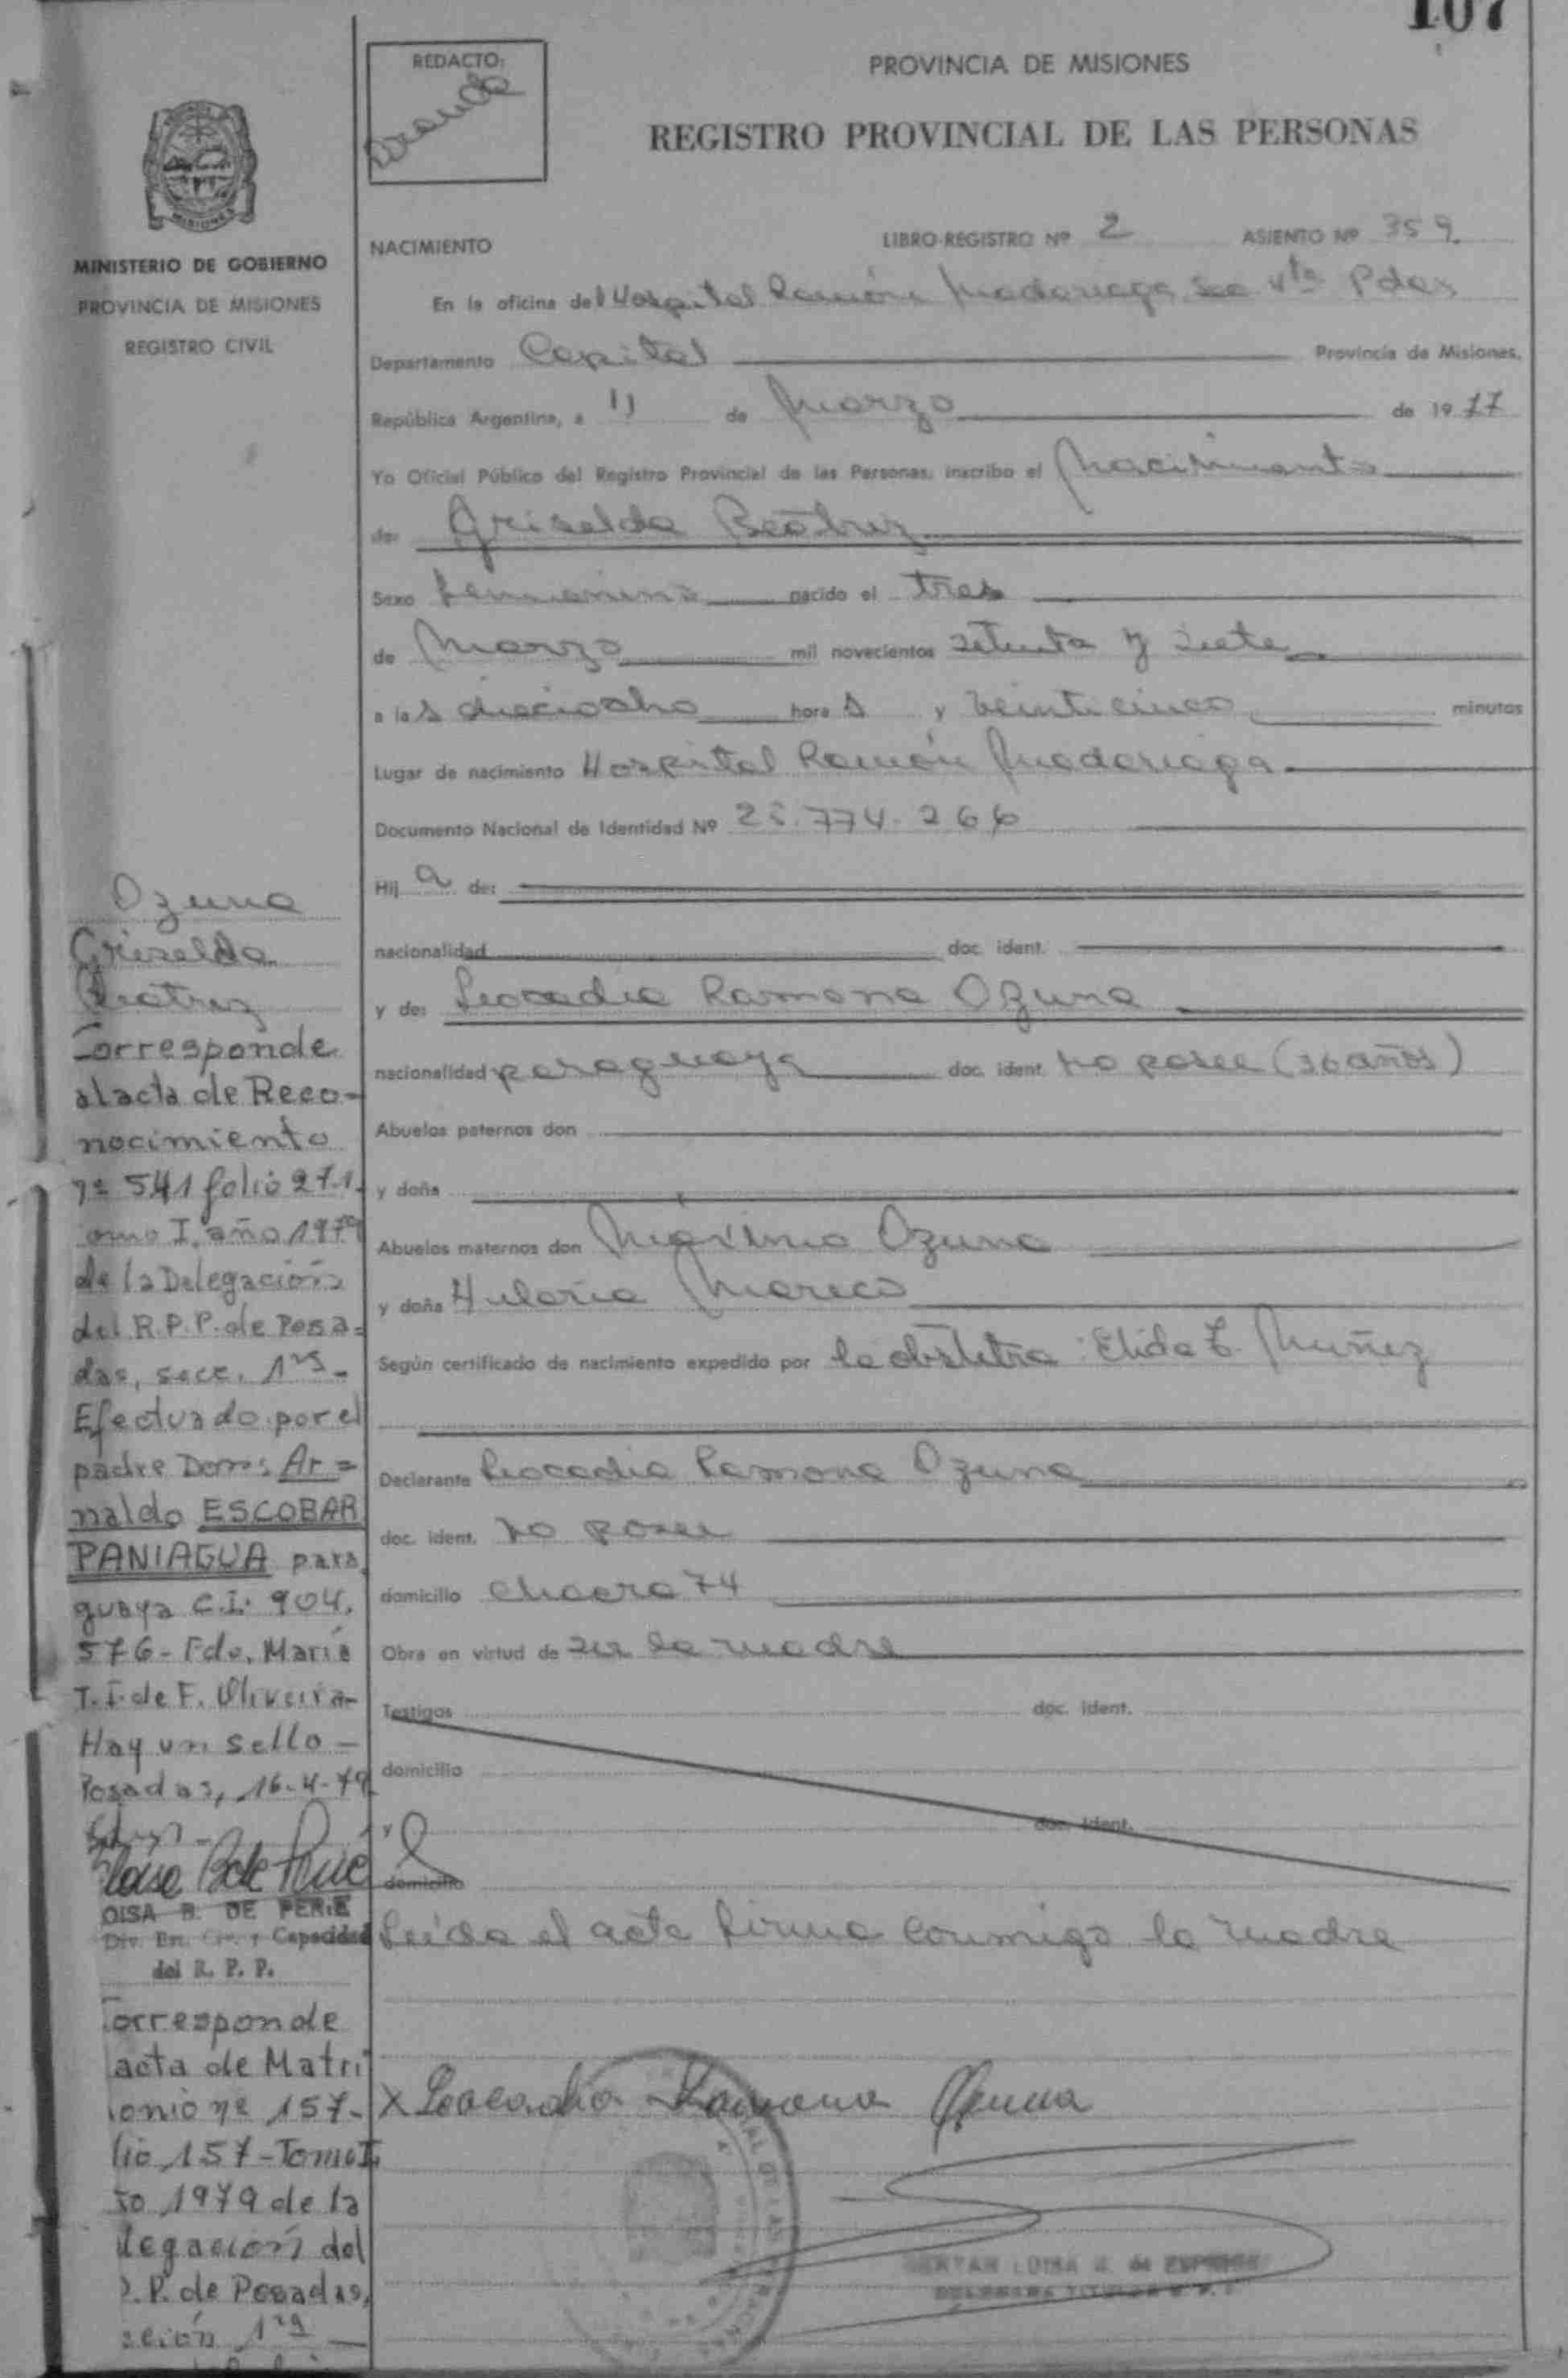 107
REDACTO:
PROVINCIA DE MISIONES
REGISTRO PROVINCIAL DE LAS PERSONAS
MISIONES
MINISTERIO DE GOBIERNO
PROVINCIA DE MISIONES
REGISTRO CIVIL
NACIMIENTO
LIBRO-REGISTRO Nº 2 ASIENTO Nº 359
En la oficina del Hospital Ramón Madariaga Sec 4ta Pdas
Departamento Capital Provincia de Misiones,
República Argentina, a 11 de Marzo de 1977
Yo Oficial Público del Registro Provincial de las Personas, inscribo el Nacimiento
de: Griselda Beatriz
Sexo femenino nacido el tres
de Marzo mil novecientos setenta y siete
a las dieciocho horas y veinticinco minutos
Lugar de nacimiento Hospital Ramón Madariaga
Documento Nacional de Identidad Nº
Hija de:
nacionalidad doc. ident.
y de: Leocadia Ramona Ozuna
nacionalidad paraguaya doc. ident. no posee (36 años)
Abuelos paternos don
y doña
Abuelos maternos don Máximo Ozuna
y doña Hilaria Mareco
Según certificado de nacimiento expedido por la obstetra: Elida E. Muñez
Declarante Leocadia Ramona Ozuna
doc. ident. no posee
domicilio chacra 74
Obra en virtud de ser la madre
Testigos doc. ident.
domicilio
y doc. ident.
domicilio
Leída el acta firma conmigo la madre
X Leocadia Ramona Ozuna
Ozuna
Griselda
Beatriz
Corresponde
al acta de Reco-
nocimiento
nº 541 folio 271
omo I. año 1979
de la Delegación
del R.P.P. de Posa=
das, secc. 1ra-
Efectuado por el
padre Don: Ar=
naldo ESCOBAR
PANIAGUA para
guaya C.I. 904.
576- Fdo. María
T. I. de F. Oliveira-
Hay un sello -
Posadas, 16-4-79
OISA B. DE PERIE
Div. Est. Civ. y Capacidad
del R. P. P.
Corresponde
acta de Matri
onio nº 157-
lio 157-Tomo I
ño 1979 de la
legación del
P. P. de Posadas,
cción 1ra